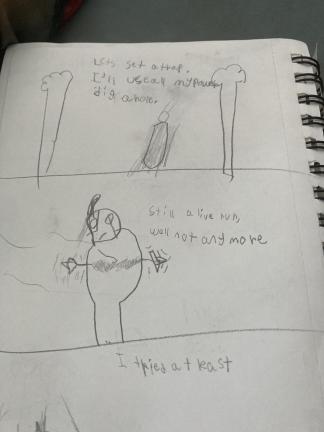 Lets set a trap.
I'll use all my power
dig a hole.
Still a live huh,
well not any more
I tried at least